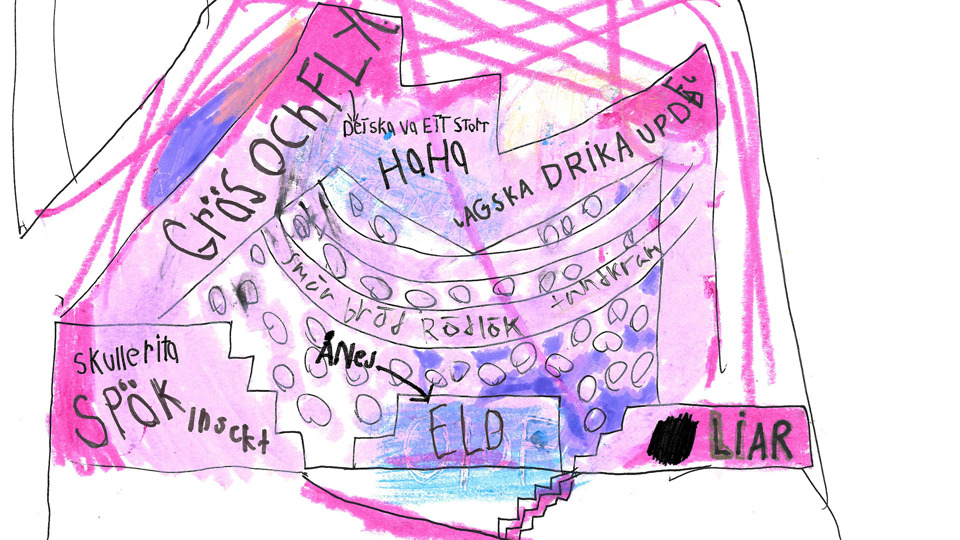 Gräs OCH FLY.
DET SKA VA ETT STORT
HAHA
JAG SKA DRIKA UPP DEN
smör bröd RödlöK tandkräm
ÅNej
SKulle rita
SPÖK Insekt
ELD
LiAR